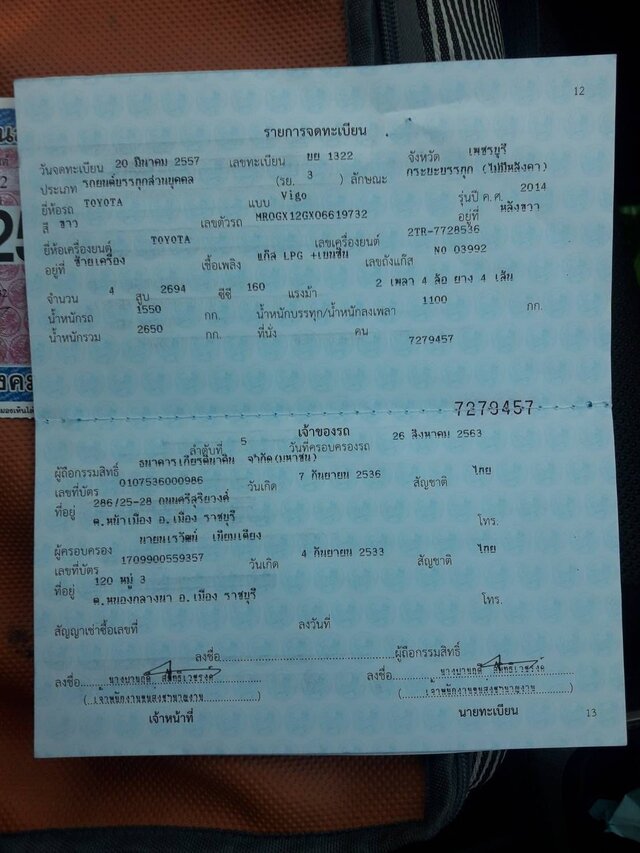 12
รายการจดทะเบียน
วันจดทะเบียน 20 มีนาคม 2557 เลขทะเบียน บย 1322 จังหวัด เพชรบุรี
ประเภท รถยนต์บรรทุกส่วนบุคคล (รย. 3 ) ลักษณะ กระบะบรรทุก (ไม่มีหลังคา)
ยี่ห้อรถ TOYOTA แบบ Vigo รุ่นปี ค.ศ. 2014
สี ขาว เลขตัวรถ MR0GX12GX06619732 อยู่ที่ หลังขวา
ยี่ห้อเครื่องยนต์ TOYOTA เลขเครื่องยนต์ 2TR-7728536
อยู่ที่ ซ้ายเครื่อง เชื้อเพลิง แก๊ส LPG +เบนซิน เลขถังแก๊ส NO 03992
จำนวน 4 สูบ 2694 ซีซี 160 แรงม้า 2 เพลา 4 ล้อ ยาง 4 เส้น
น้ำหนักรถ 1550 กก. น้ำหนักบรรทุก/น้ำหนักลงเพลา 1100 กก.
น้ำหนักรวม 2650 กก. ที่นั่ง คน 7279457
7279457
เจ้าของรถ
ลำดับที่ 5 วันที่ครอบครองรถ 26 สิงหาคม 2563
ผู้ถือกรรมสิทธิ์ ธนาคารเกียรตินาคิน จำกัด(มหาชน)
เลขที่บัตร 0107536000986 วันเกิด 7 กันยายน 2536 สัญชาติ ไทย
ที่อยู่ 286/25-28 ถนนศรีสุริยวงศ์
ต.หน้าเมือง อ.เมือง ราชบุรี โทร.
ผู้ครอบครอง นายนเรวัฒน์ เนียมเตียง
เลขที่บัตร 1709900559357 วันเกิด 4 กันยายน 2533 สัญชาติ ไทย
ที่อยู่ 120 หมู่ 3
ต.หนองกลางนา อ.เมือง ราชบุรี โทร.
สัญญาเช่าซื้อเลขที่ ลงวันที่
ลงชื่อ ผู้ถือกรรมสิทธิ์
ลงชื่อ ลงชื่อ
(เจ้าพนักงานขนส่งชำนาญงาน) (เจ้าพนักงานขนส่งชำนาญงาน)
เจ้าหน้าที่ นายทะเบียน
13